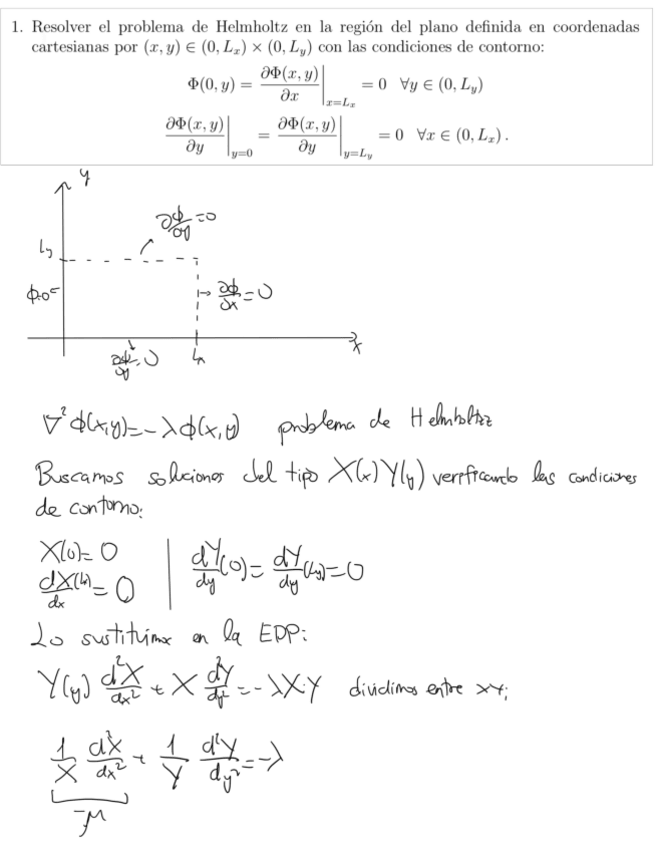 1. Resolver el problema de Helmholtz en la región del plano definida en coordenadas
cartesianas por (x, y) ∈ (0, Lₓ) × (0, L_y) con las condiciones de contorno:
Φ(0, y) = ∂Φ(x, y)/∂x |_{x=Lₓ} = 0 ∀y ∈ (0, L_y)
∂Φ(x, y)/∂y |_{y=0} = ∂Φ(x, y)/∂y |_{y=L_y} = 0 ∀x ∈ (0, Lₓ).
y
∂ϕ/∂y = 0
L_y
ϕ=0
∂ϕ/∂x = 0
∂ϕ/∂y = 0
Lₓ
x
∇²ϕ(x,y) = -λϕ(x,y) problema de Helmholtz
Buscamos soluciones del tipo X(x)Y(y) verificando las condiciones
de contorno:
X(0) = 0 | dY/dy(0) = dY/dy(L_y) = 0
dX/dx(Lₓ) = 0
Lo sustituimos en la EDP:
Y(y) d²X/dx² + X d²Y/dy² = -λXY dividimos entre XY:
1/X d²X/dx² + 1/Y d²Y/dy² = -λ
-μ